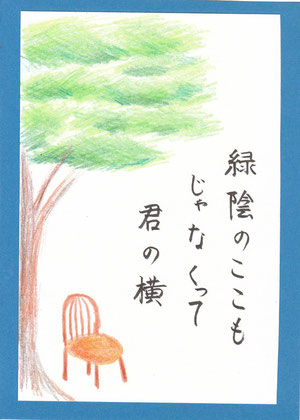 緑陰のここも
じゃなくって
君の横